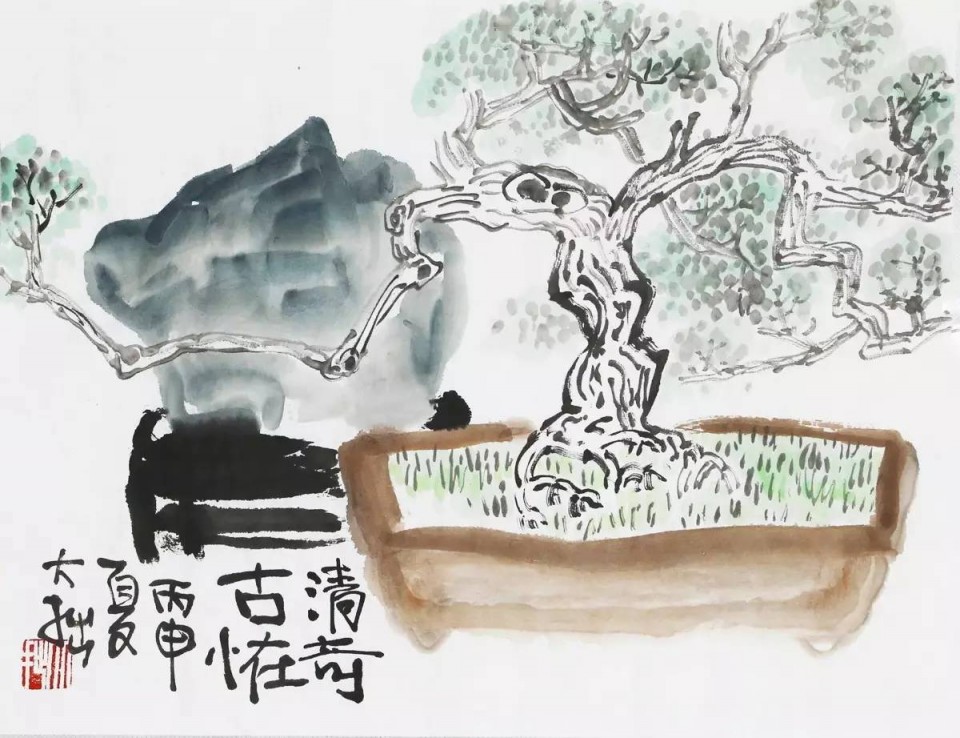 清奇
古怪
丙申
夏
大拙